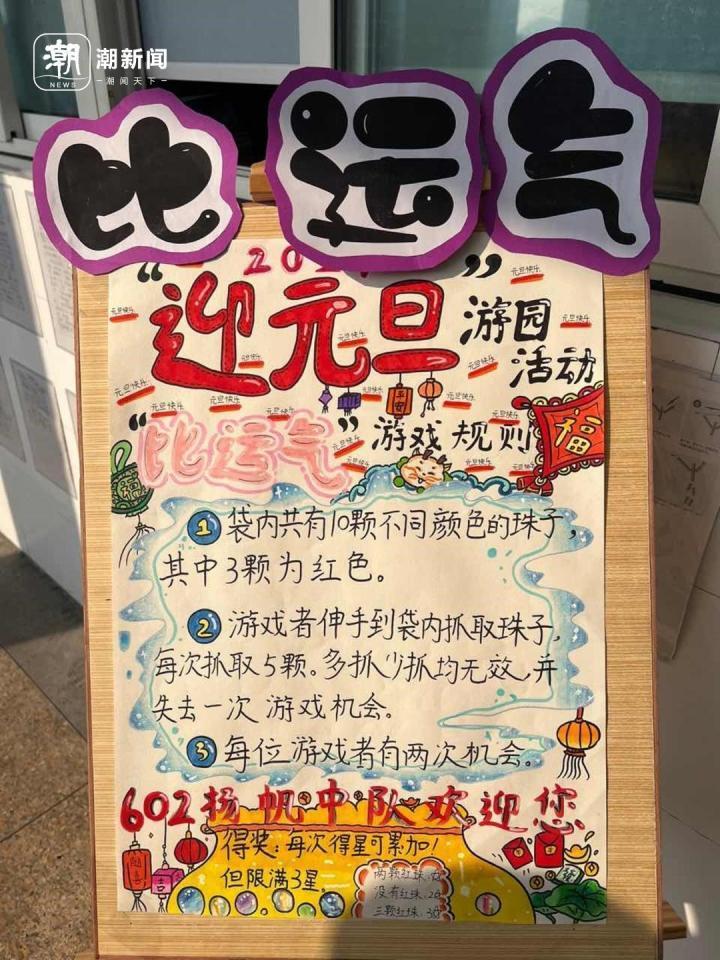 潮 潮新闻
NEWS 潮闻天下
比运气
“迎元旦” 游园
活动
元旦快乐
元旦快乐
元旦快乐
元旦快乐
元旦快乐
元旦快乐
元旦快乐
元旦快乐
平安
“比运气” 游戏规则
福
福
1 袋内共有10颗不同颜色的珠子,
其中3颗为红色。
2 游戏者伸手到袋内抓取珠子,
每次抓取5颗。多抓少抓均无效,并
失去一次游戏机会。
3 每位游戏者有两次机会。
602扬帆中队欢迎您
得奖:每次得星可累加!
但限满3星
两颗红珠:
没有红珠:2
三颗红珠:3
吉